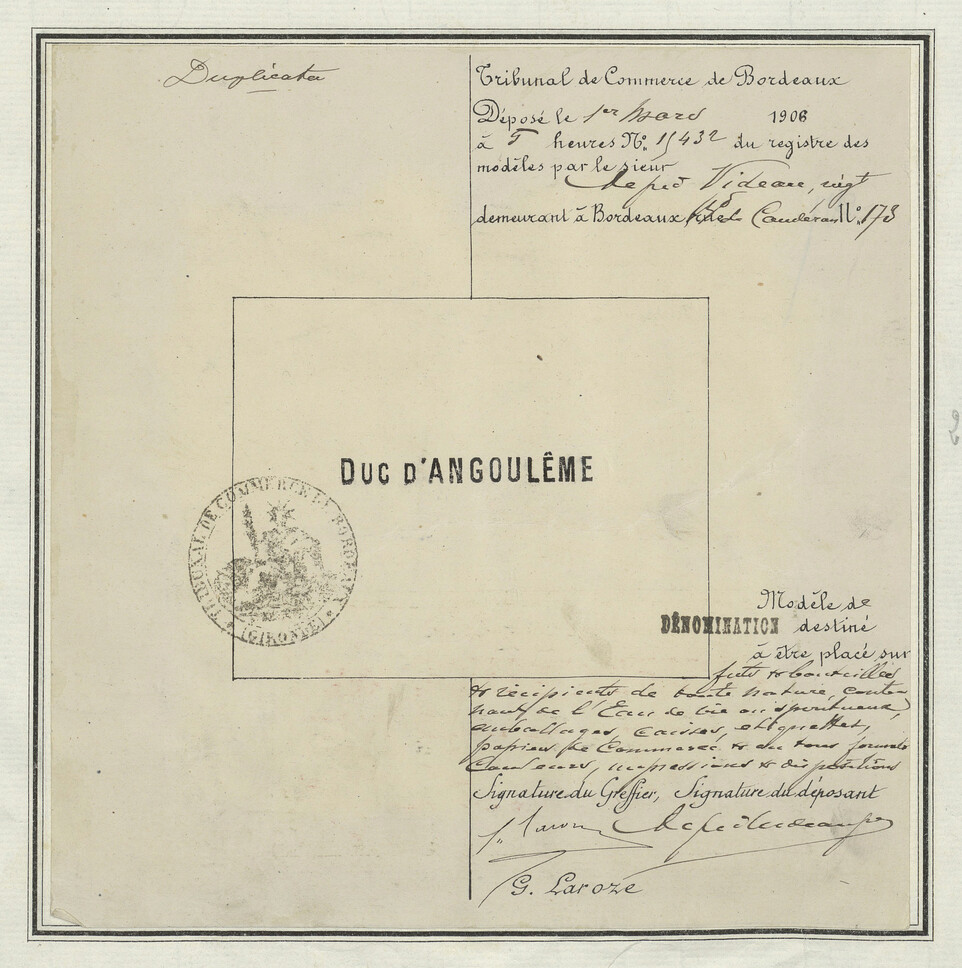 Duplicata
Tribunal de Commerce de Bordeaux
Déposé le 1er Mars 1906
à 5 heures No. 15432 du registre des
modèles par le sieur
Videau, négt
demeurant à Bordeaux de Caudéran No. 173
DUC D'ANGOULÊME
TRIBUNAL DE COMMERCE DE BORDEAUX
(GIRONDE)
Modèle de
DÉNOMINATION destiné
à être placé sur
futs & bouteilles
& récipients de toute nature, conte-
nant de l'Eau de vie ou spiritueux,
emballages, caisses, etiquettes,
papiers de Commerce & en tous formats
Couleurs, impressions & dispositions
Signature du Greffier, Signature du déposant
G. Laroze